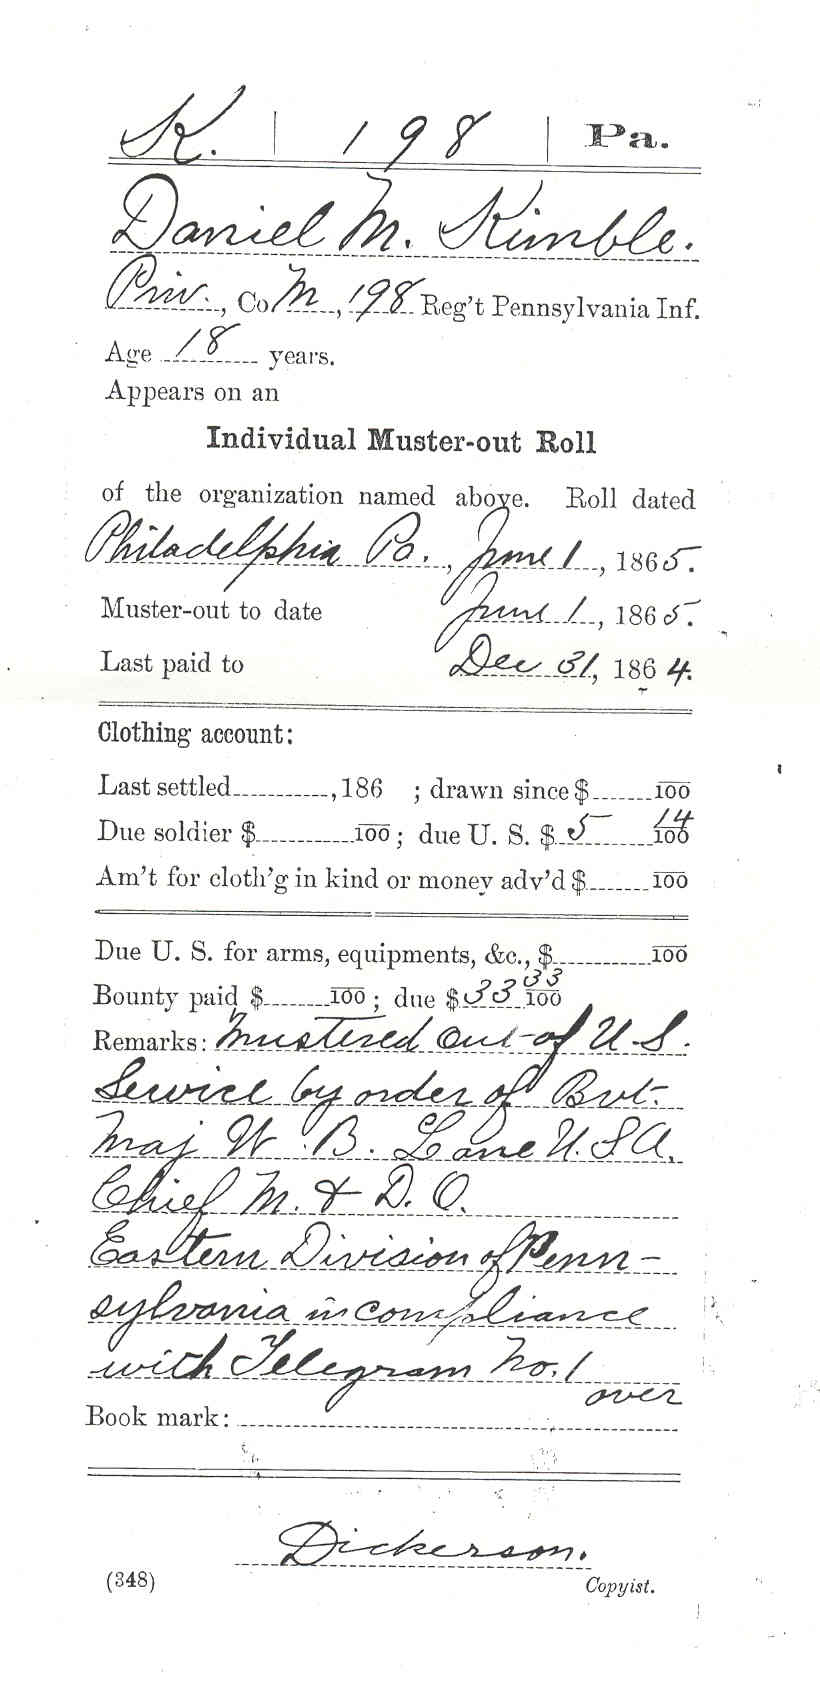 K. | 198 | Pa.
Daniel M. Kimble.
Priv., Co M, 198 Reg't Pennsylvania Inf.
Age 18 years.
Appears on an
Individual Muster-out Roll
of the organization named above. Roll dated
Philadelphia Pa., June 1, 1865.
Muster-out to date June 1, 1865.
Last paid to Dec 31, 1864.
Clothing account:
Last settled, 186 ; drawn since $ 100
Due soldier $ 100; due U. S. $ 5 14/100
Am't for cloth'g in kind or money adv'd $ 100
Due U. S. for arms, equipments, &c., $ 100
Bounty paid $ 100; due $ 33 33/100
Remarks: Mustered out of U.S.
Service by order of Bvt.
Maj W. B. Lane U.S.A.
Chief M. & D. O.
Eastern Division of Penn-
sylvania in compliance
with Telegram No. 1
over
Book mark:
Dickerson.
(348) Copyist.